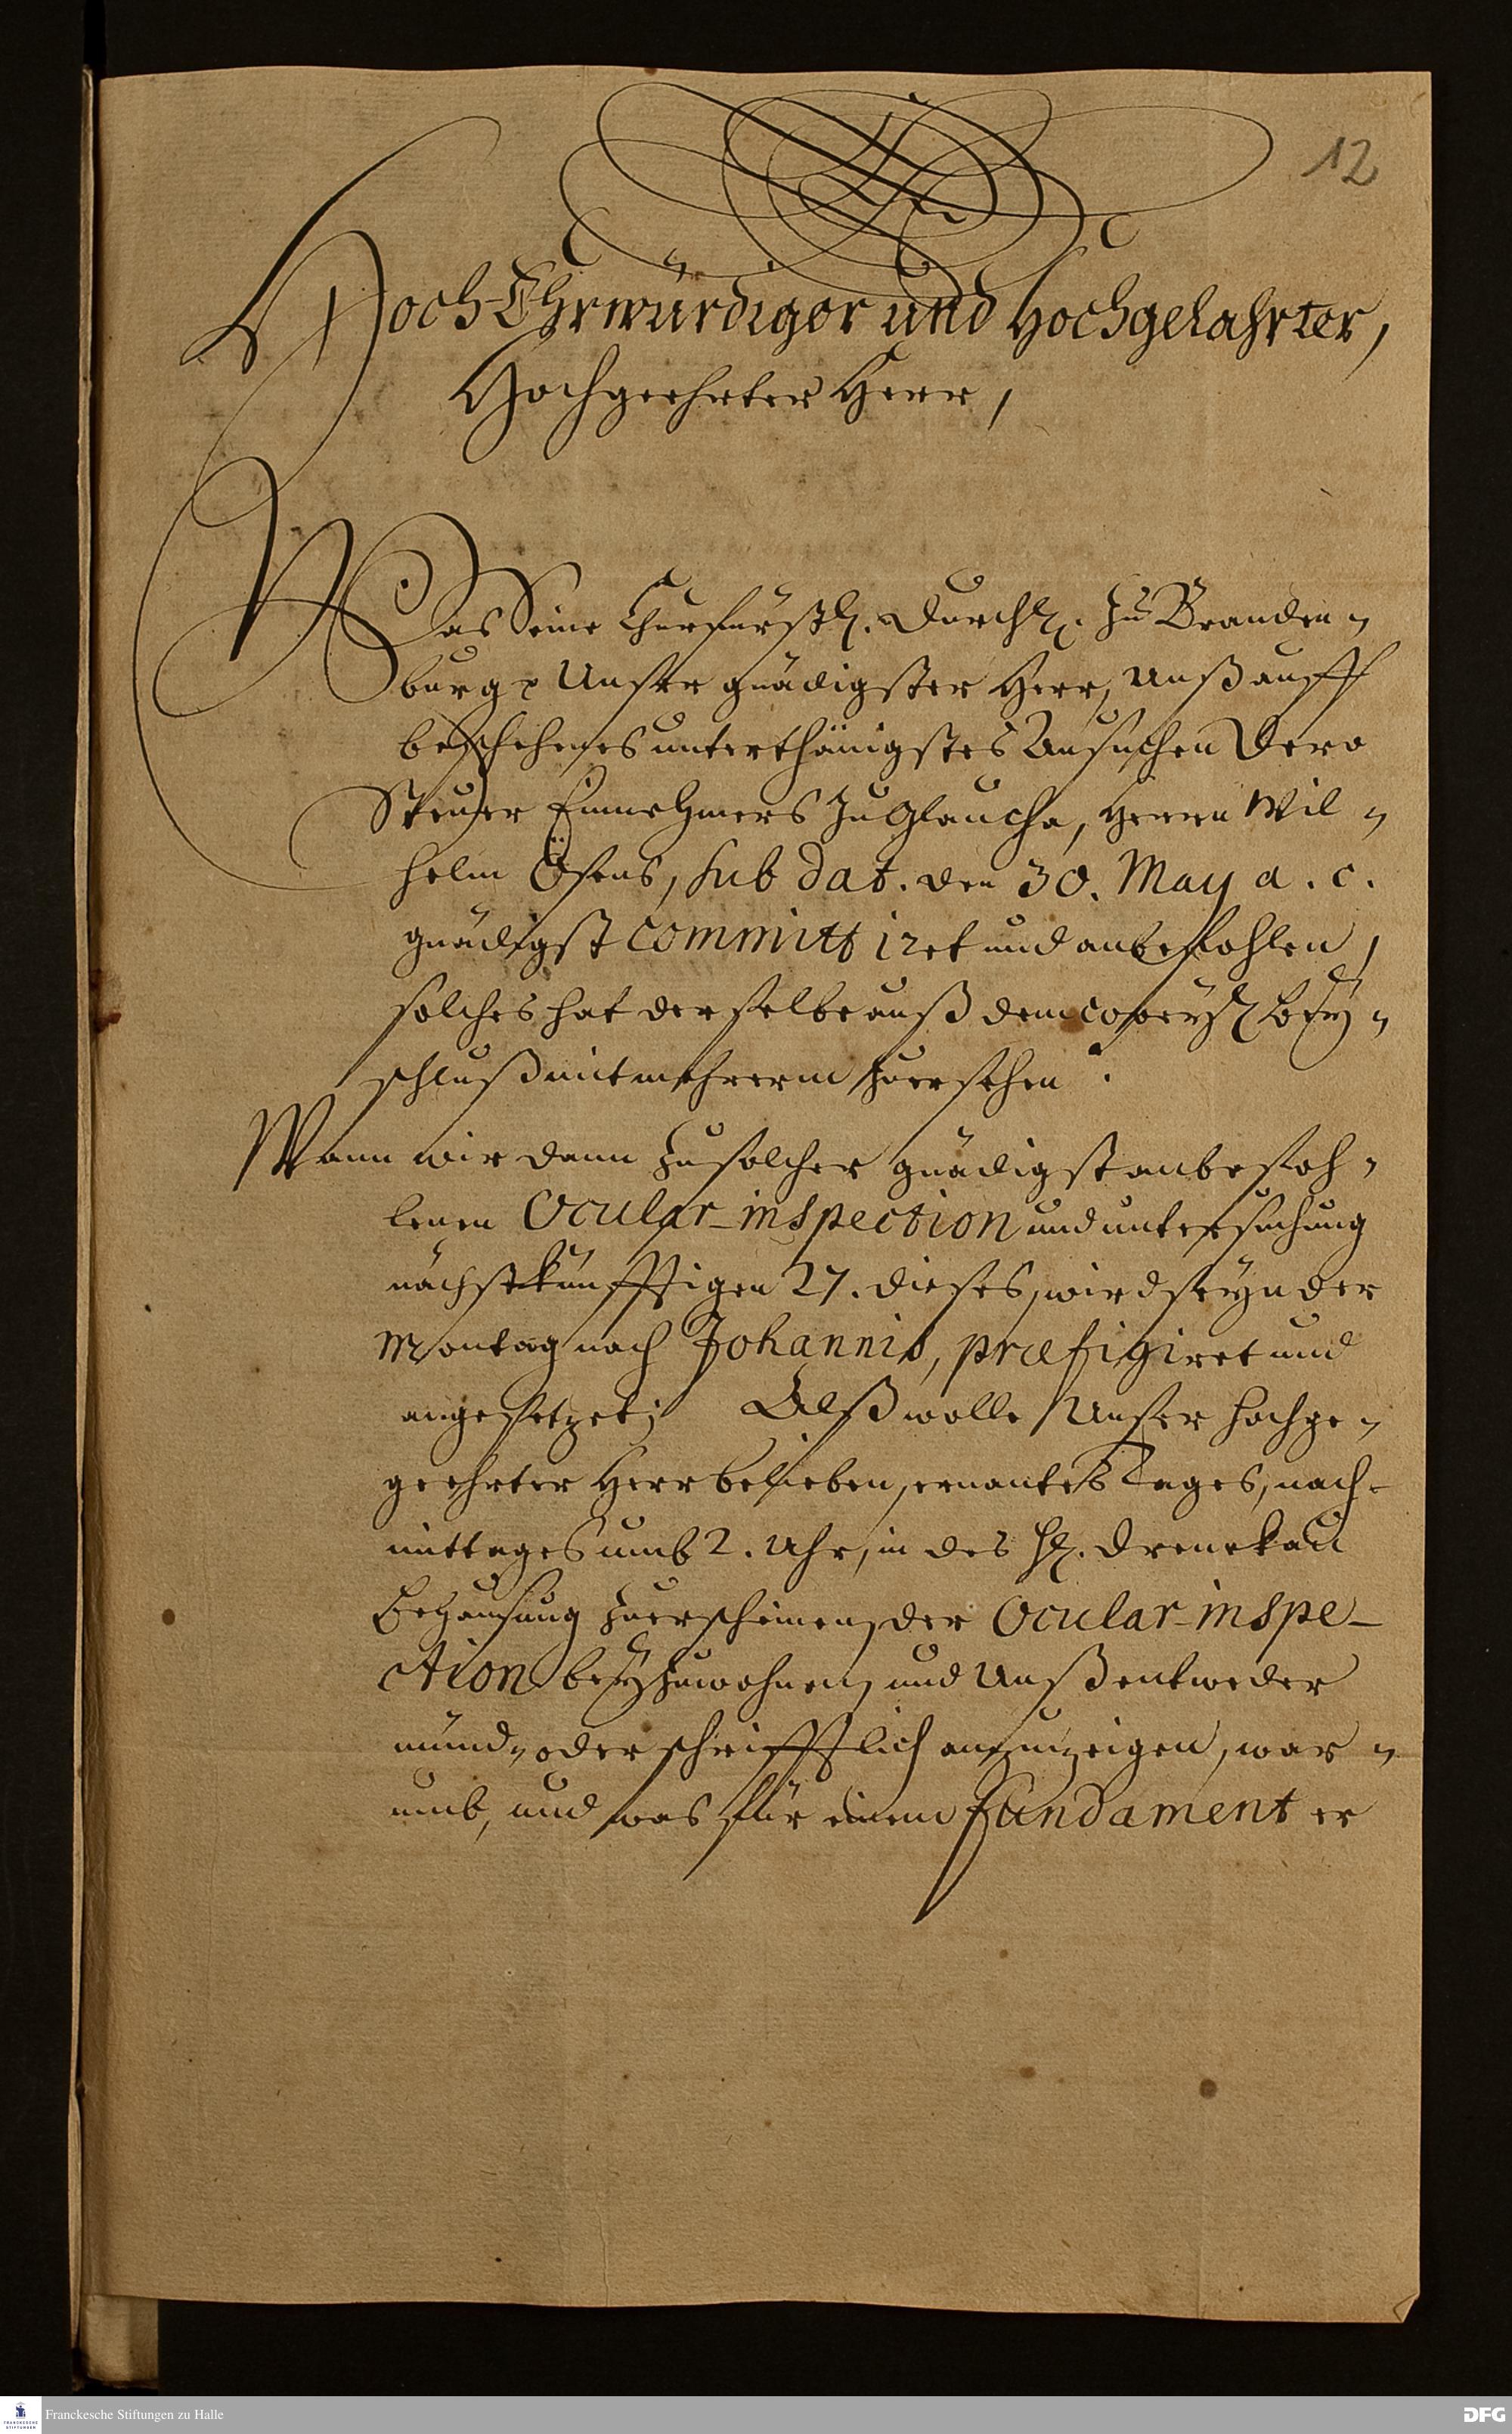 12
Hoch-Ehrwürdiger und Hochgelahrter,
Hochgeehrter Herr,
Was Seine Churfürstl. Durchl. zu Branden-
burg Unser gnädigster Herr, Unß auff
beschehenes unterthänigstes Ansuchen Dero
Steuer Einnehmers zu Glaucha, Herrn Wil-
helm Ösens, sub dat. den 30. May a. c.
gnädigst committiret und anbefohlen,
solches hat derselbe auß dem copeyl. Bey-
schluß mit mehrerm zuersehen.
Wann wir dann zu solcher gnädigst anbefoh-
lenen Ocular-inspection und untersuchung
nächstkünfftigen 27. dieses, wird seyn der
Montag nach Johannis, præfigiret und
angesetzet; Alß wolle Unser hochge-
geehrter Herr belieben, ernantes Tages, nach-
mittages umb 2. Uhr, in des H.
Behausung zuerscheinen, der Ocular-inspe-
ction beyzuwohnen, und Unß entweder
münd- oder schrifftlich anzuzeigen, war-
umb, und was für einem fundament er
Franckesche Stiftungen zu Halle
DFG